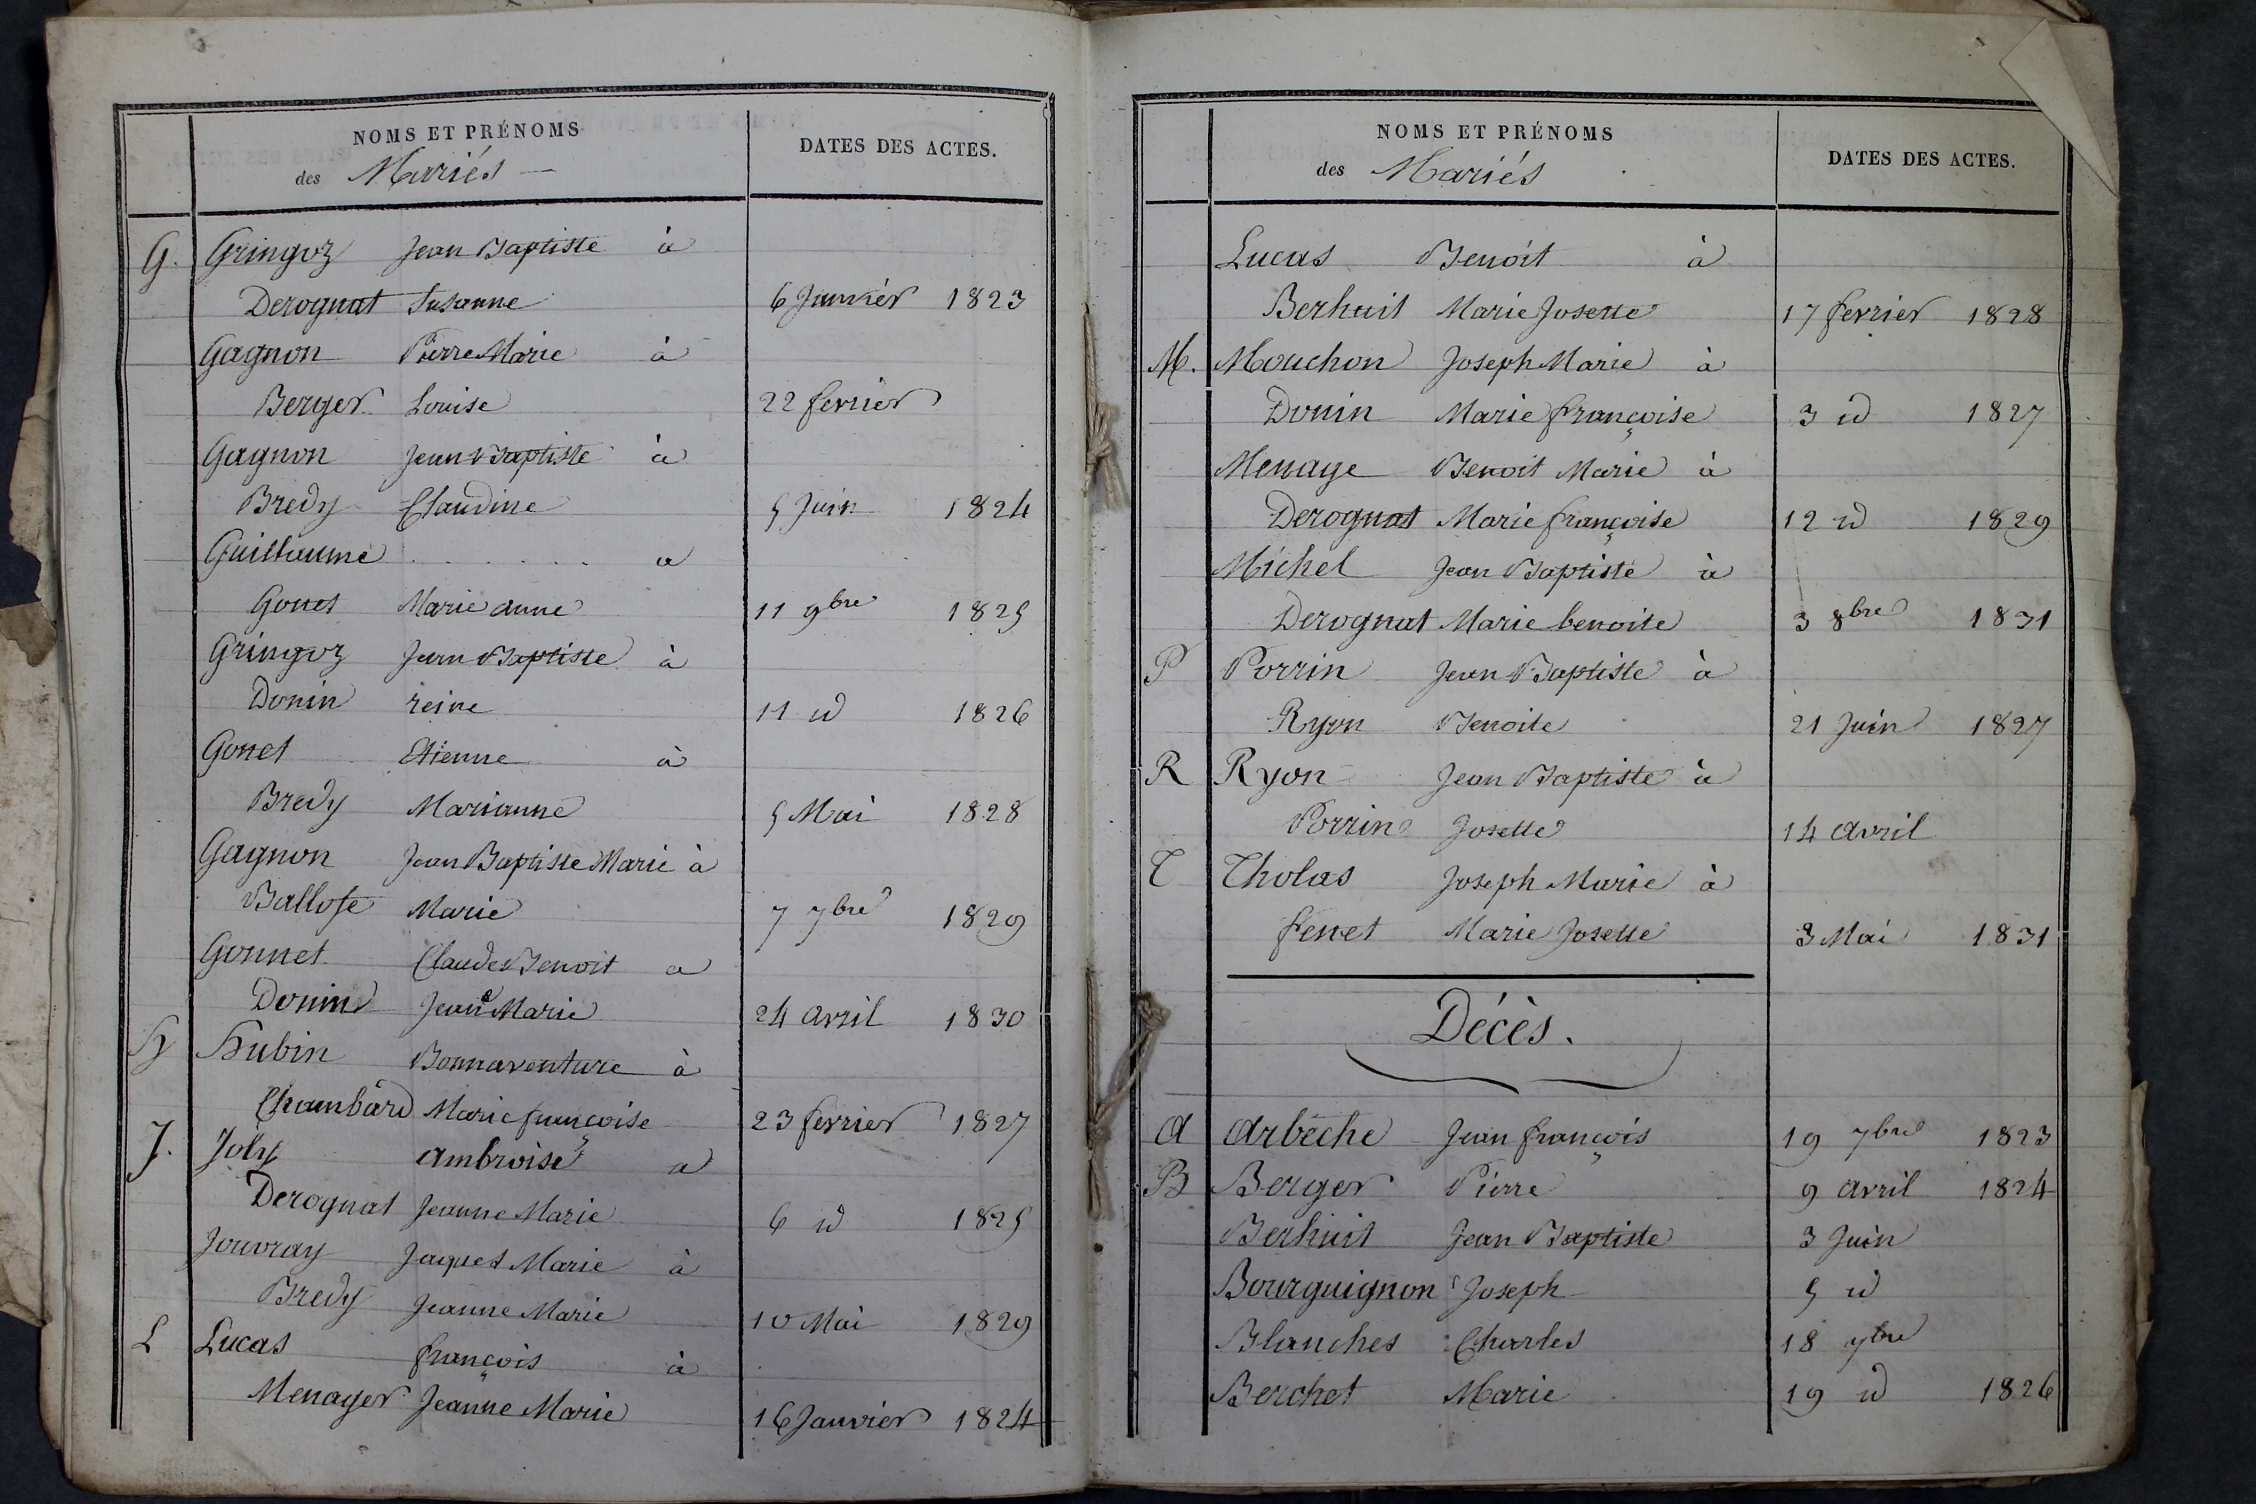 NOMS ET PRÉNOMS
des Mariés
DATES DES ACTES.
G. Gringoz Jean Baptiste à
Derognat Susanne 6 Janvier 1823
Gagnon Pierre Marie à
Berger Louise 22 fevrier
Gagnon Jean Baptiste à
Bredy Claudine 5 Juin 1824
Guillaume . . . . . . . a
Gonet Marie anne 11 9bre 1825
Gringoz Jean Baptiste à
Donin reine 11 id 1826
Gonet Etienne à
Bredy Marianne 5 Mai 1828
Gagnon Jean Baptiste Marie à
Ballofe Marie 7 7bre 1829
Gonnet Claude Benoit a
Donin Jeane Marie 24 avril 1830
H Hubin Bonnaventure à
Chambard Marie françoise 23 fevrier 1827
J. Joly ambroise a
Derognat Jeanne Marie 6 id 1825
Jouvray Jaques Marie à
Bredy Jeanne Marie 10 Mai 1829
L Lucas françois à
Menager Jeanne Marie 16 Janvier 1824
NOMS ET PRÉNOMS
des Mariés
DATES DES ACTES.
Lucas Benoit à
Berhuit Marie Josette 17 fevrier 1828
M. Mouchon Joseph Marie à
Donin Marie françoise 3 id 1827
Menage Benoit Marie à
Derognat Marie françoise 12 id 1829
Michel Jean Baptiste à
Derognat Marie benoite 3 8bre 1831
P Porrin Jean Baptiste à
Ryon Benoite 21 Juin 1827
R Ryon Jean Baptiste à
Porrin Josette 14 avril
T Tholas Joseph Marie à
fenet Marie Josette 3 Mai 1831
Décès.
A Arbêche Jean françois 19 7bre 1823
B Berger Pierre 9 avril 1824
Berhuit Jean Baptiste 3 Juin
Bourguignon Joseph 5 id
Blanches Charles 18 7bre
Berchet Marie 19 id 1826